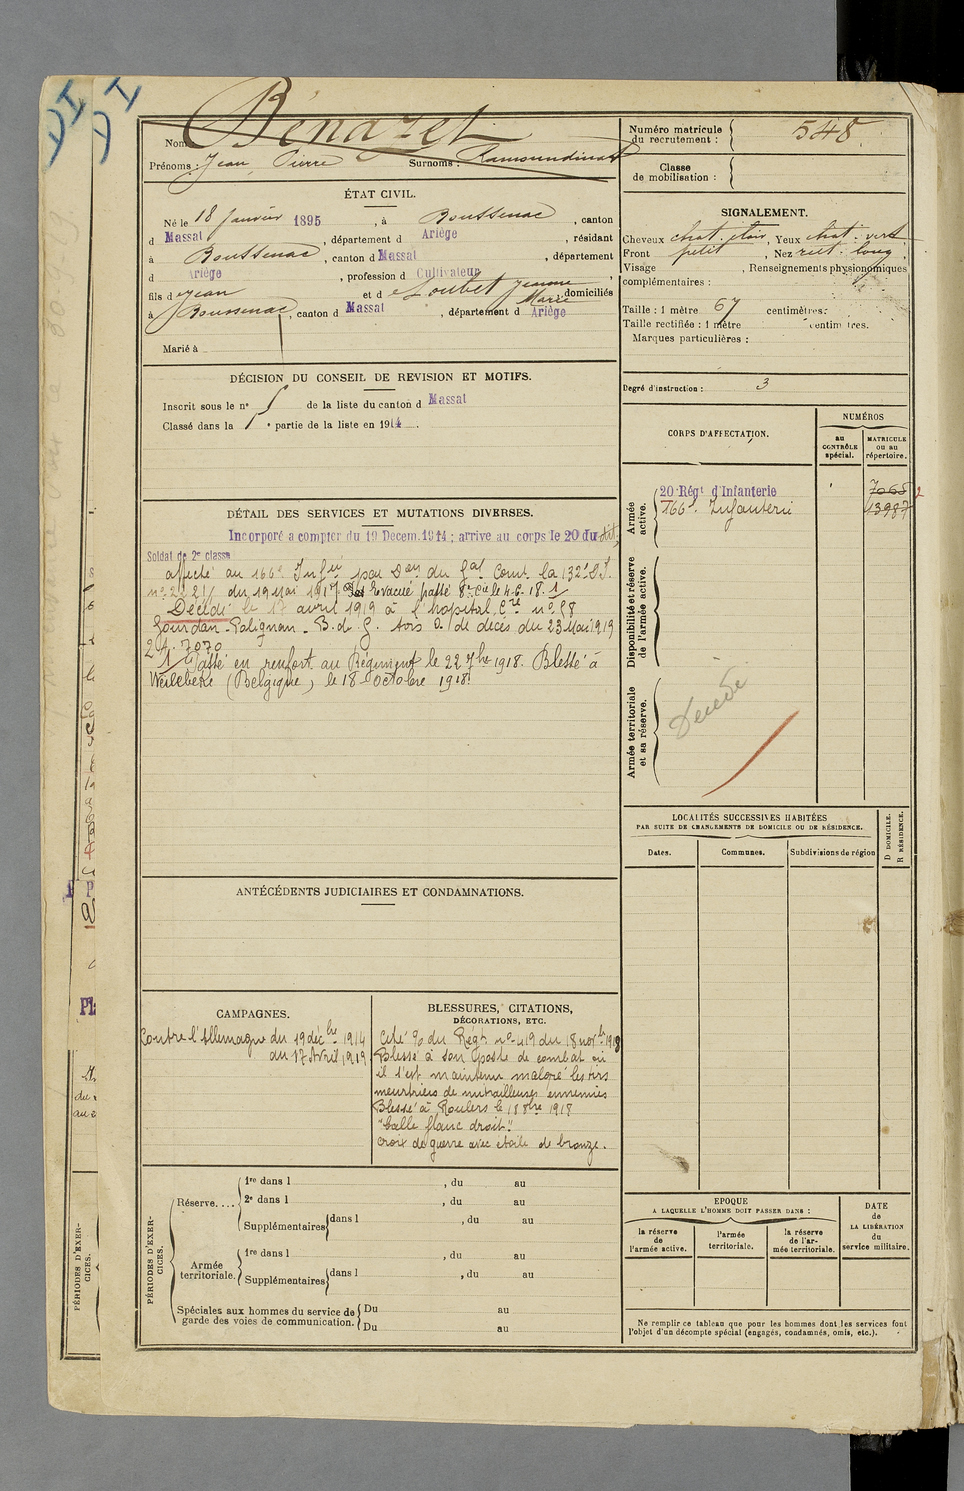 DI
DI
Nom
Bénazet
Prénoms : Jean Pierre Surnoms :
Numéro matricule du recrutement : 548
Classe de mobilisation :
ÉTAT CIVIL.
Né le 18 Janvier 1895, à Boussenac, canton
d Massat, département d Ariège, résidant
à Boussenac, canton d Massat, département
d Ariège, profession d Cultivateur,
fils de Jean et de Loubet Jeanne Marie domiciliés
à Boussenac, canton d Massat, département d Ariège
Marié à
SIGNALEMENT.
Cheveux chat. clair, Yeux chat. vert
Front petit, Nez rect. long,
Visage , Renseignements physionomiques
complémentaires :
Taille : 1 mètre 67 centimètres:
Taille rectifiée : 1 mètre centimètres.
Marques particulières :
Degré d'instruction : 3
DÉCISION DU CONSEIL DE REVISION ET MOTIFS.
Inscrit sous le n° 5 de la liste du canton d Massat
Classé dans la 1 e partie de la liste en 1914.
CORPS D'AFFECTATION.
NUMÉROS
au CONTRÔLE spécial.
MATRICULE ou au répertoire.
Armée active.
20 Régt d'Infanterie 7065
166e Infanterie 13987
Disponibilité et réserve de l'armée active.
Armée territoriale et sa réserve.
Décédé
DÉTAIL DES SERVICES ET MUTATIONS DIVERSES.
Incorporé a compter du 19 Decem. 1914 ; arrive au corps le 20 du dit,
Soldat de 2e classe
affecté au 166e Inf ie par Don du Gal Comt la 132e D.I.
n° 2221/ du 19 Mai 1917. Evacué passé 8e Cie le 4.6.18. 1/
Décédé le 17 avril 1919 à l'hopital Cre n° 58
Gourdan-Polignan - B. d. G. avis O. de décès du 23 Mai 1919
2 A. 7070
1/ Passé en renfort au Régiment le 22 7bre 1918. Blessé à
(Belgique) le 18 Octobre 1918.
LOCALITÉS SUCCESSIVES HABITÉES
PAR SUITE DE CHANGEMENTS DE DOMICILE OU DE RÉSIDENCE.
Dates. Communes. Subdivisions de région
D DOMICILE.
R RÉSIDENCE.
ANTÉCÉDENTS JUDICIAIRES ET CONDAMNATIONS.
CAMPAGNES.
Contre l'Allemagne du 19 déc bre 1914
au 17 Avril 1919
BLESSURES, CITATIONS,
DÉCORATIONS, ETC.
Cité % du Régt n° 419 du 18 nov bre 1918
Blessé à son poste de combat où
il s'est maintenu malgré les tirs
meurtriers de mitrailleuses ennemies
Blessé à Roulers le 18 8bre 1918
"balle flanc droit."
croix de guerre avec étoile de bronze.
PÉRIODES D'EXERCICES.
Réserve....
1re dans l , du au
2e dans l , du au
Supplémentaires dans l , du au
Armée territoriale.
1re dans l , du au
Supplémentaires dans l , du au
Spéciales aux hommes du service de
garde des voies de communication.
Du au
Du au
EPOQUE
A LAQUELLE L'HOMME DOIT PASSER DANS :
la réserve de l'armée active.
l'armée territoriale.
la réserve de l'armée territoriale.
DATE de LA LIBÉRATION du service militaire.
Ne remplir ce tableau que pour les hommes dont les services font
l'objet d'un décompte spécial (engagés, condamnés, omis, etc.).
PÉRIODES D'EXERCICES.